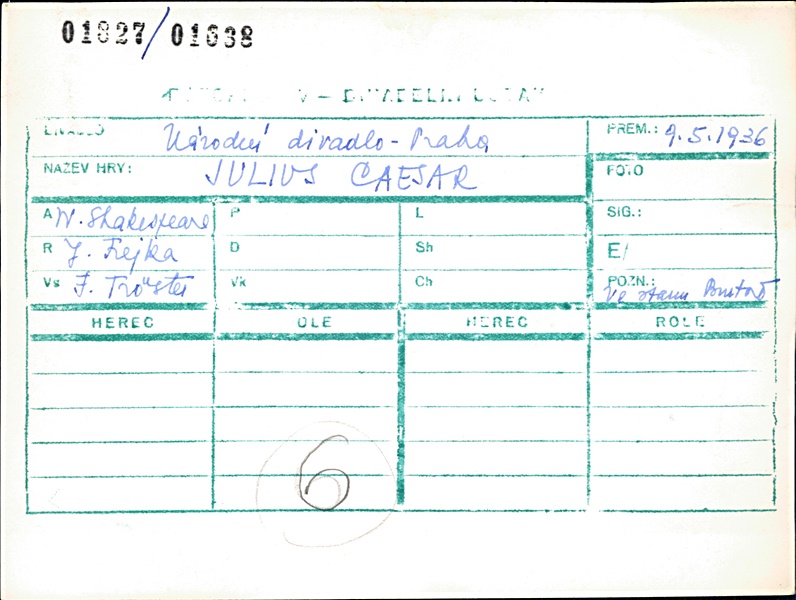 01827/01638
DIVADELNÍ ÚSTAV
DIVADLO Národní divadlo - Praha PREM.: 9.5.1936
NÁZEV HRY: JULIUS CAESAR FOTO
A W. Shakespeare P L SIG.:
R J. Frejka D Sh E/
Vs F. Tröster Vk Ch POZN.:
Ve stanu Brutově
HEREC OLE HEREC ROLE
6